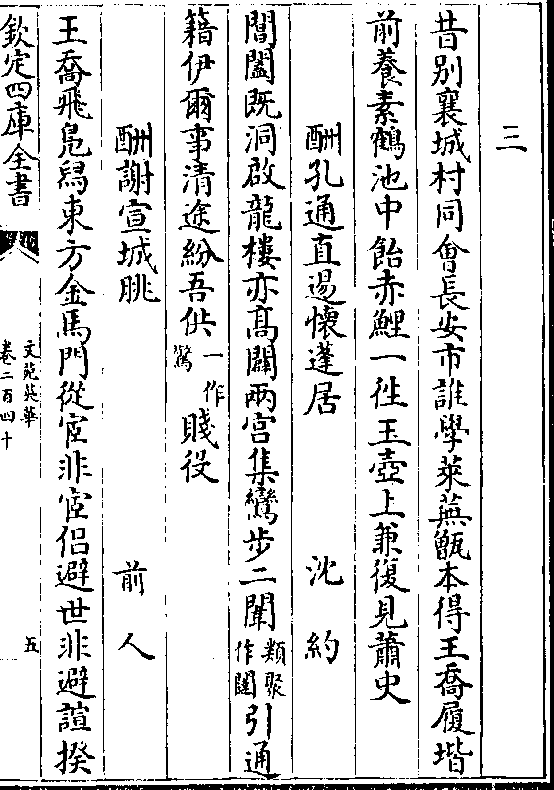 三
昔別襄城村同會長安市誰學萊蕪甑本得王喬履堦
前養素鶴池中飴赤鯉一徃玉壺上兼復見蕭史
酬孔通直逷懷蓬居 沈約
閶闔既洞啟龍樓亦髙闢兩宫集鸞步二聞類聚作閨引通
籍伊爾事清途紛吾供一作驚賤役
酬謝宣城朓 前人
王喬飛鳧舄東方金馬門從宦非宦侣避世非避諠揆
欽定四庫全書
文苑英華
卷二百四十
五